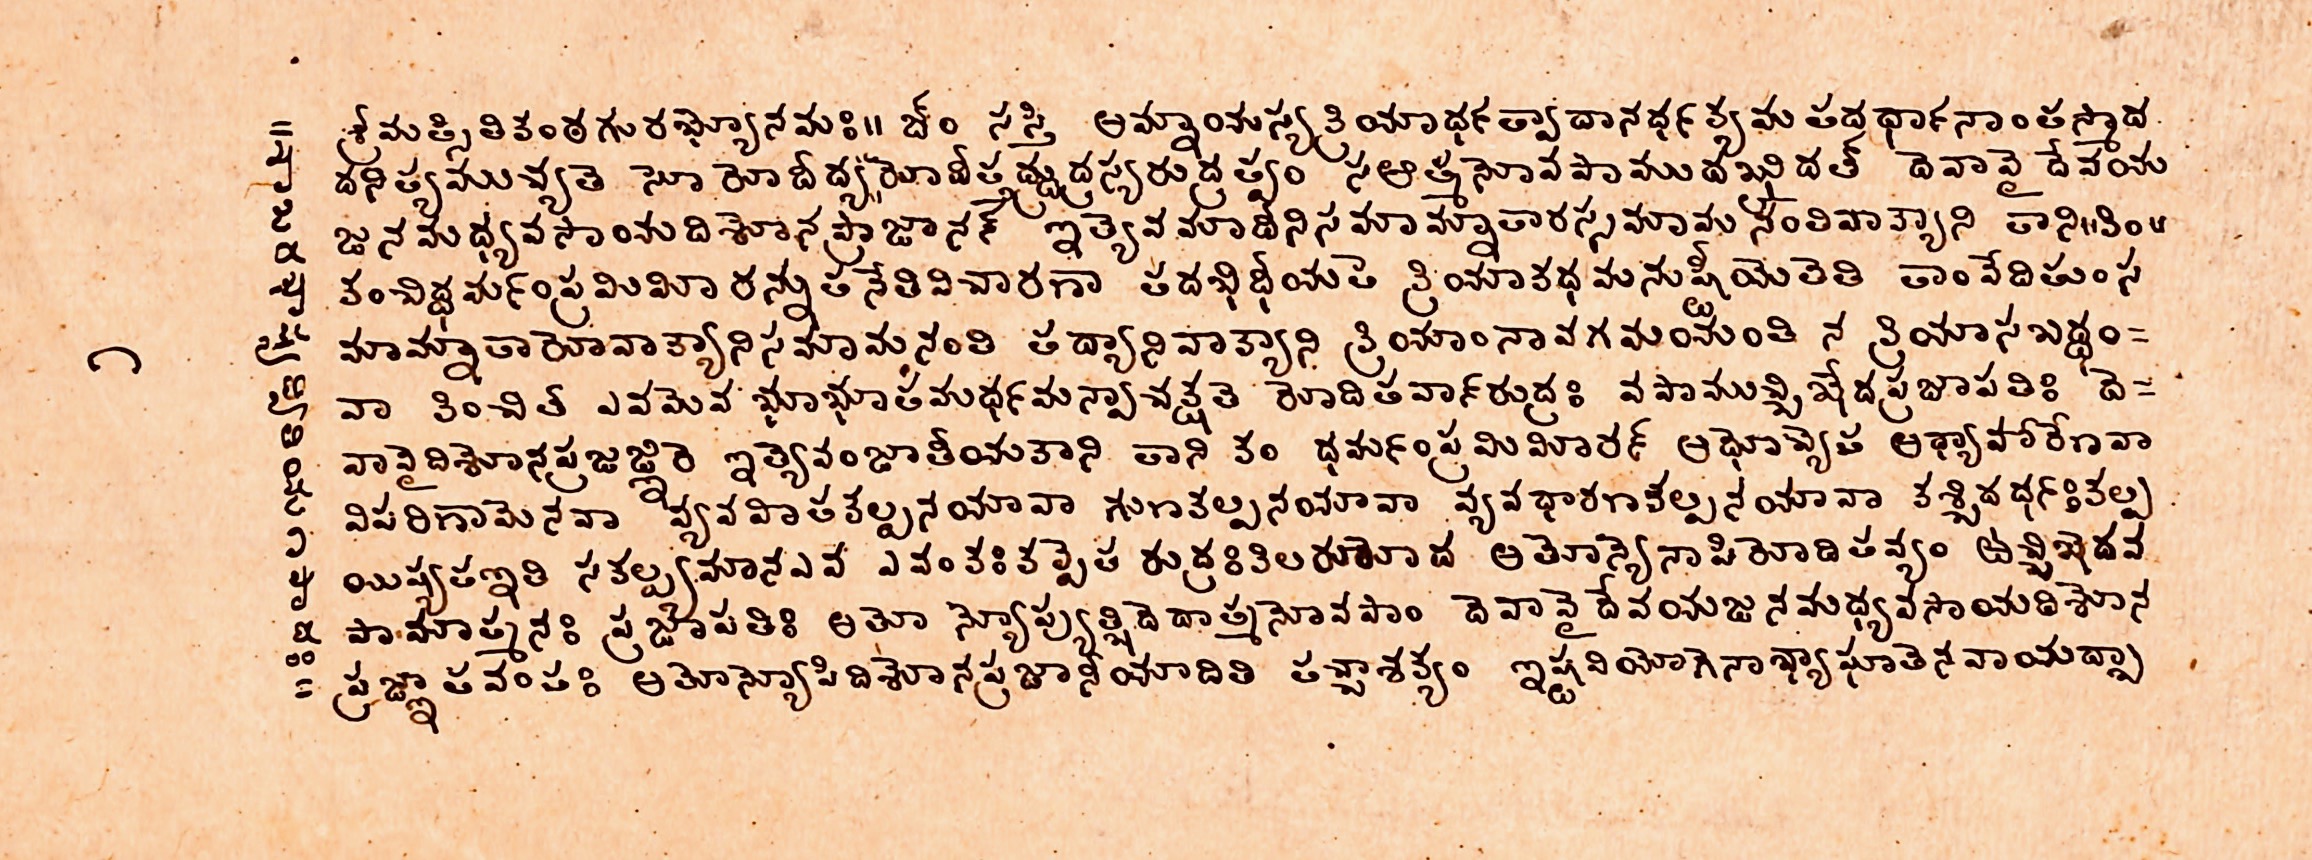 శ్రీమత్సితికంఠగురభ్యోనమః॥ ఓం స్వస్తి ఆమ్నాయస్యక్రియార్థత్వాదానర్థక్యమతదర్థానాంతస్మాద
దనిత్యముచ్యతె సొరోదీద్యదరోదీత్తద్రుద్రస్యరుద్రత్వం సఆత్మనోవపాముదఖ్ఖిదత్ దెవావై దేవయ
జనమధ్యవసాయదిశోనప్రాజానన్ ఇత్యెవమాదీనిసమామ్నాతారస్సమామనంతివాక్యాని తాని॥కిం॥
కంచిద్ధర్మంప్రమిమీరన్నుతనేతివిచారణా తదభిధీయతె క్రియాకథమనుష్ఠీయెతెతి తాంవేదితుంస
మామ్నాతారోవాక్యానిసమామనంతి తద్యానివాక్యాని క్రియాంనావగమయంతి న క్రియాసబద్ధం=
వా కించిత్ ఎవమెవ భూభూతమర్థమన్వాచక్షతె రోదితవాన్రుద్రః వపాముచ్చిఖేదప్రజాపతిః దె=
వావైదిశోనప్రజజ్ఞిరె ఇత్యెవంజాతీయకాని తాని కం ధర్మంప్రమిమీరన్ అథోచ్యెత అధ్యాహారేణవా
విపరిణామెనవా వ్యవహితకల్పనయావా గుణకల్పనయావా వ్యవధారణకల్పనయావా కశ్చిదర్థఃకల్ప
యిష్యతఇతి సకల్ప్యమానఎవ ఎవంకఃకప్పెత రుద్రఃకిలరురోద అతోన్యెనాపిరోదితవ్యం ఉచ్చిఖెదవ
పామాత్మనః ప్రజాపతిః అతో న్యోప్యుత్ఖిదెదాత్మనోవపాం దెవావై దేవయజనమధ్యవసాయదిశోన
ప్రజ్ఞాతవంతః అతోన్యోపిదిశోనప్రజానీయాదితి తచ్చాశక్యం ఇష్టవియోగెనాభ్యాఘాతెనవాయద్బా